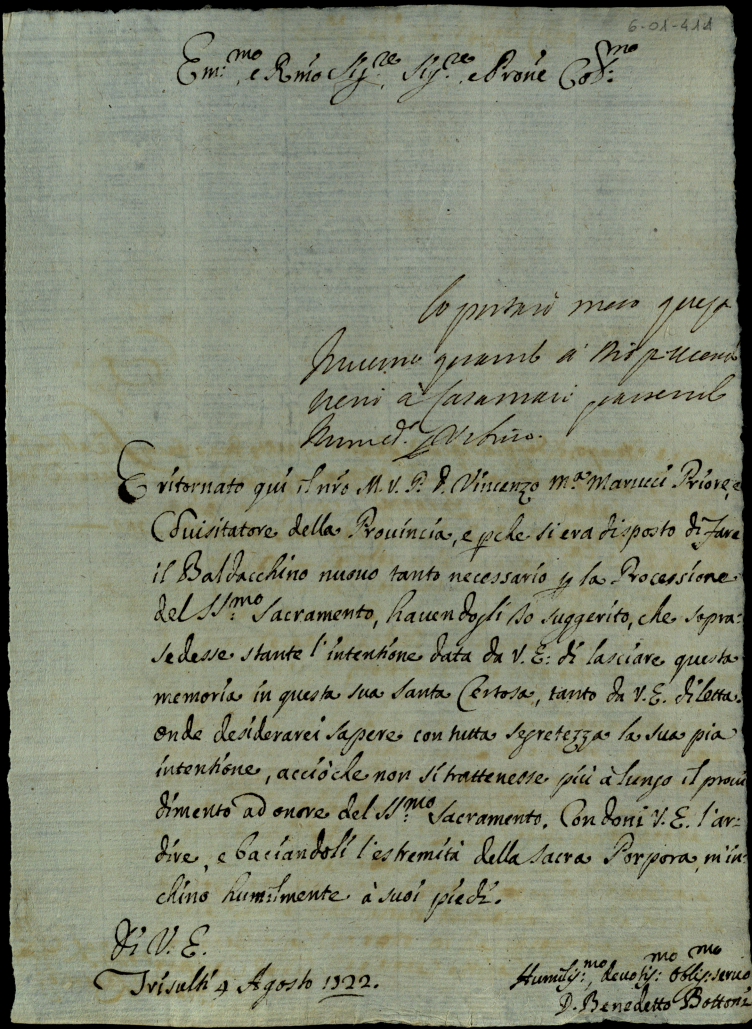 6-01-414
Em:mo, e Rmo Sig.re, Sig.re, e Prone Col:mo
Io porterò meco questa
à
à Casamari
E ritornato qui il nro M. V. P. D. Vincenzo Ma Marucci Priore, e
Cōuisitatore della Prouincia, e pche si era disposto di fare
il Baldacchino nuouo tanto necessario p la Processione
del SS:mo Sacramento, hauendogli io suggerito, che sopra-
sedesse stante l'intentione data da V. E: di lasciare questa
memoria in questa sua santa Certosa, tanto da V. E. diletta.
onde desiderarei sapere con tutta segretezza la sua pia
intentione, acciòche non si trattenesse più à lungo il proui
dimento ad onore del SS:mo Sacramento. Condoni V. E. l'ar-
dire, e baciandoli l'estremità della sacra Porpora, m'in-
chino humilmente à suoi piedi.
Di V. E.
Trisulti 4 Agosto 1722.
Humilis:mo, deuotis:mo oblig:mo seruo
D. Benedetto Bottoni